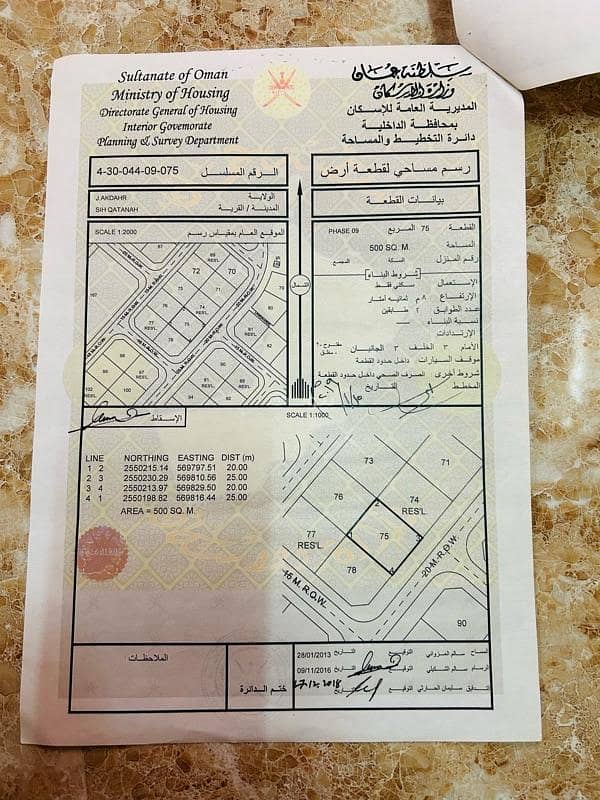 Sultanate of Oman
Ministry of Housing
Directorate General of Housing
Interior Governorate
Planning & Survey Department
سلطنة عمان
وزارة الإسكان
المديرية العامة للإسكان
بمحافظة الداخلية
دائرة التخطيط والمساحة
4-30-044-09-075 الرقم المسلسل
رسم مساحي لقطعة أرض
J.AKDAHR الولاية
SIH QATANAH المدينة / القرية
بيانات القطعة
SCALE 1:2000 الموقع العام بمقياس رسم
القطعة 75 المربع PHASE 09
المساحة 500 SQ. M.
رقم المنزل السكة المجمع
شروط البناء
الاستعمال سكني فقط
الإرتفاع ٨ م ثمانية أمتار
عدد الطوابق ٢ طابقين
نسبة البناء
الإرتدادات
الأمام ٣ الخلف ٣ الجانبان
موقف السيارات داخل حدود القطعة
شروط أخرى الصرف الصحي داخل حدود القطعة
المخطط التاريخ
الشمال
107
72
70
RES'L
76
74
RES'L
75
77
RES'L
78
90
RES'L
98
99
RES'L
100
92
94
RES'L
الإسقاط
SCALE 1:1000
LINE NORTHING EASTING DIST (m)
1 2 2550215.14 569797.51 20.00
2 3 2550230.29 569810.56 25.00
3 4 2550213.97 569829.50 20.00
4 1 2550198.82 569816.44 25.00
AREA = 500 SQ. M.
73
71
76
74
RES'L
77
RES'L
75
78
1
2
90
15 M. R.O.W.
20 M. R.O.W.
الملاحظات
ختم الدائرة
المساح سالم العزواني التوقيع التاريخ 28/01/2013
الرسام التوقيع التاريخ 09/11/2016
التدقيق سليمان الحارثي التوقيع التاريخ 27/2.2018